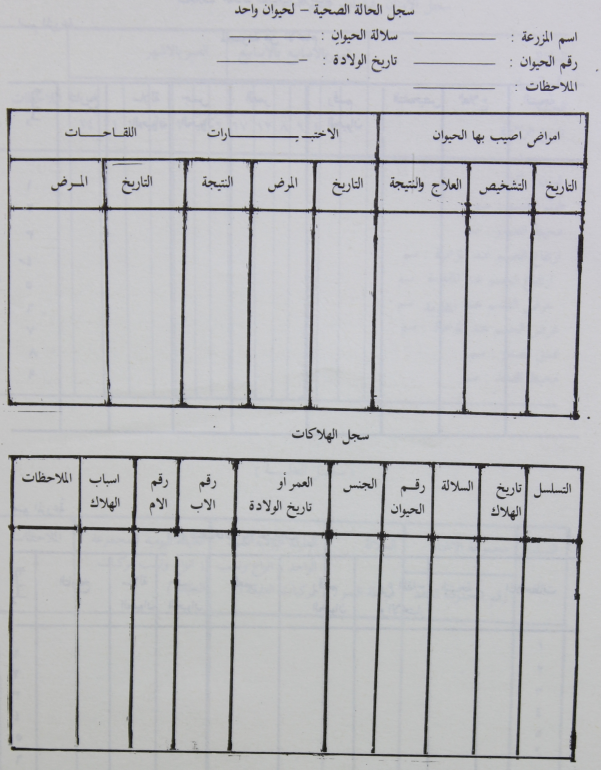 سجل الحالة الصحية - لحيوان واحد
اسم المزرعة : سلالة الحيوان :
رقم الحيوان : تاريخ الولادة :
الملاحظات :
امراض اصيب بها الحيوان الاختبــــارات اللقاحات
التاريخ التشخيص العلاج والنتيجة التاريخ المرض النتيجة التاريخ المرض
سجل الهلاكات
التسلسل تاريخ الهلاك السلالة رقم الحيوان الجنس العمر أو تاريخ الولادة رقم الاب رقم الام اسباب الهلاك الملاحظات